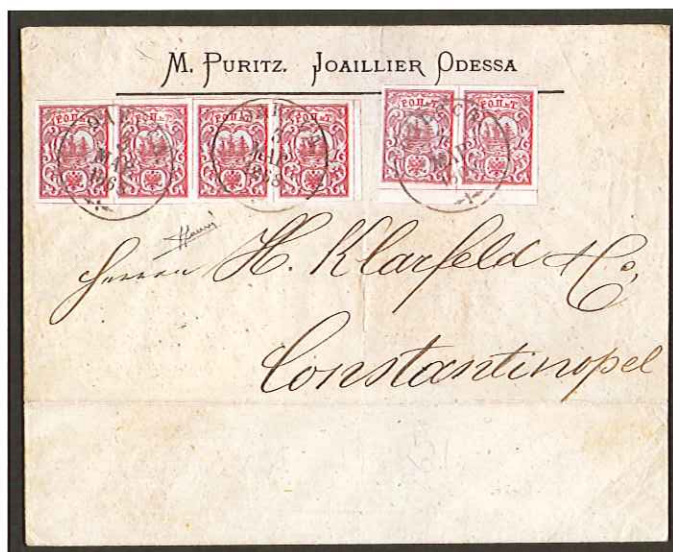 M. PURITZ. JOAILLIER ODESSA
РОПиТ РОПиТ РОПиТ РОПиТ РОПиТ РОПиТ
МАР МАР МАР
Herren H. Klarfeld & Co,
Constantinopel